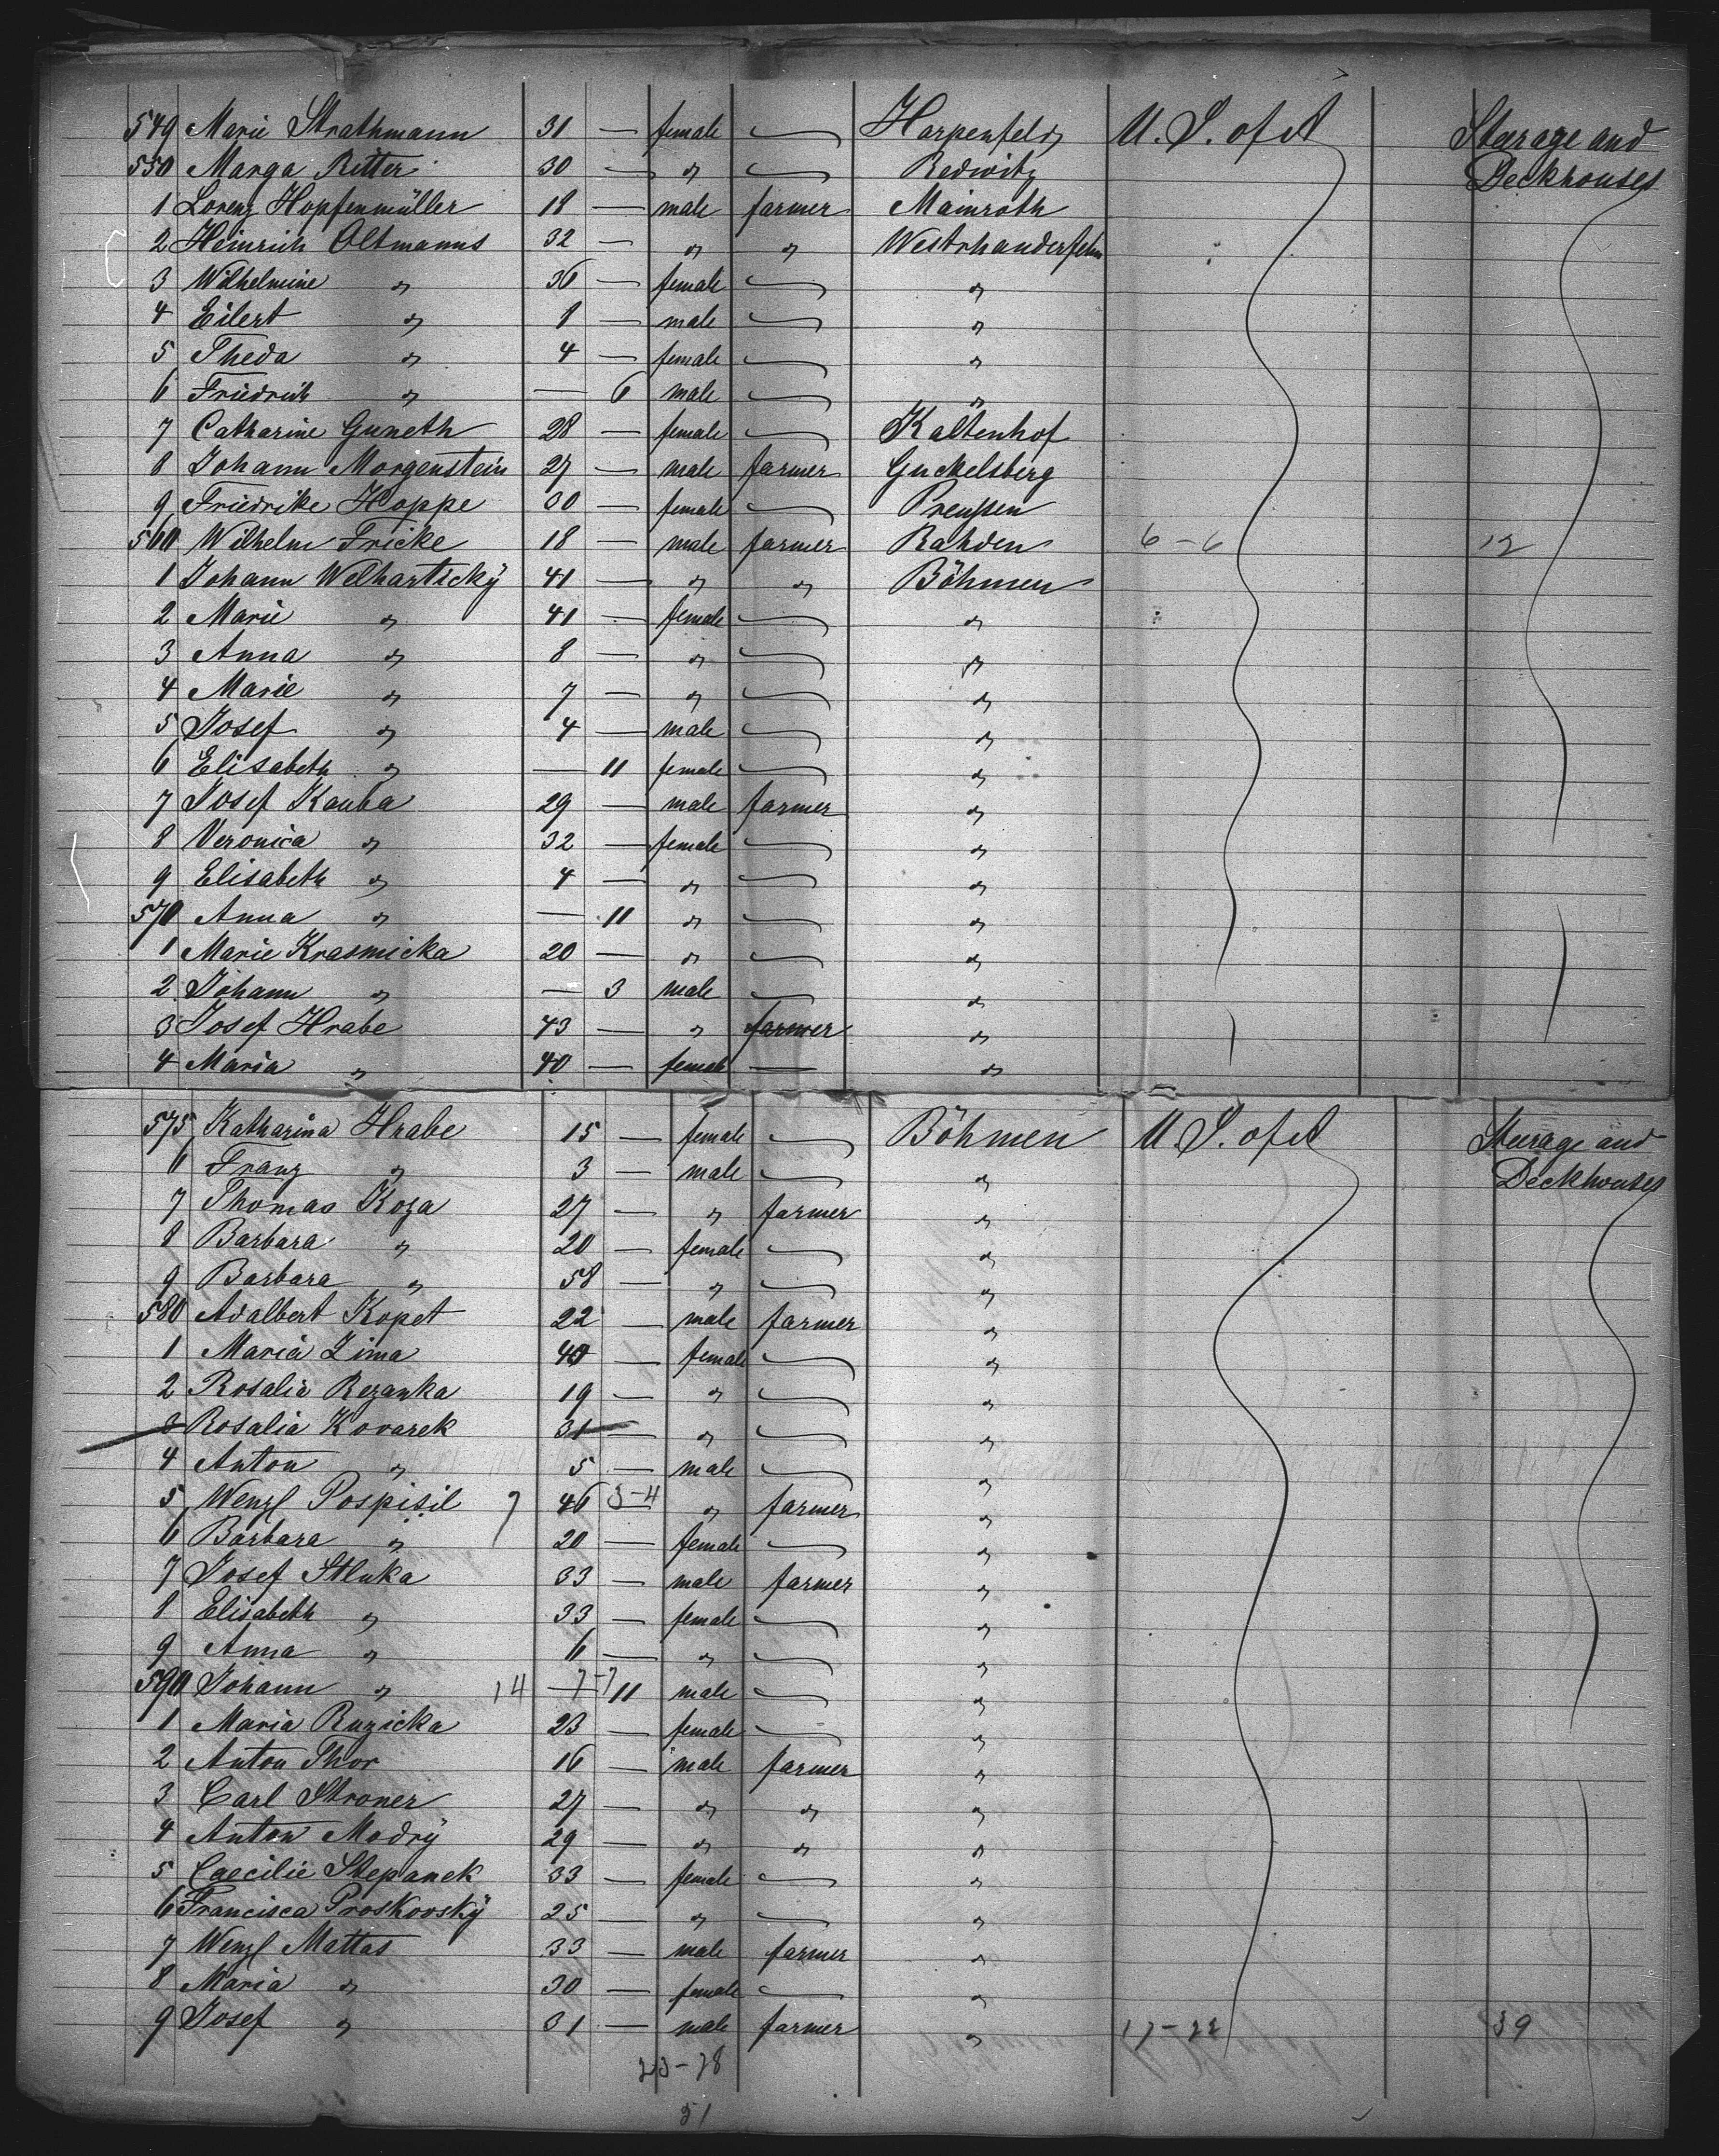 549 Marie Strathmann 31 — female — Harpenfeld U. S. of A Steerage and
550 Marga Ritter 30 — " — Redwitz Deckhouses
1 Lorenz Hopfenmüller 18 — male farmer Mainroth
2 Heinrich Oltmanns 32 — " " Westrhanderfehn
3 Wilhelmine " 36 — female — "
4 Eilert " 8 — male — "
5 Theda " 4 — female — "
6 Friedrich " — 6 male — "
7 Catharine Guneth 28 — female — Kaltenhof
8 Johann Morgenstein 27 — male farmer Guckelsberg
9 Friedrike Hoppe 30 — female — Preußen
560 Wilhelm Fricke 18 — male farmer Rahden 6-6 12
1 Johann Welhartický 41 — " " Böhmen
2 Marie " 41 — female — "
3 Anna " 8 — " — "
4 Marie " 7 — " — "
5 Josef " 4 — male — "
6 Elisabeth " — 11 female — "
7 Josef Kauba 29 — male farmer "
8 Veronica " 32 — female — "
9 Elisabeth " 4 — " — "
570 Anna " — 11 " — "
1 Marie Krasnicka 20 — " — "
2 Johann " — 3 male — "
3 Josef Hrabe 43 — " farmer "
4 Maria " 40 — female — "
575 Katharina Hrabe 15 — female — Böhmen U. S. of A Steerage and
6 Franz " 3 — male — " Deckhouses
7 Thomas Koza 27 — " farmer "
8 Barbara " 20 — female — "
9 Barbara " 58 — " — "
580 Adalbert Kopet 22 — male farmer "
1 Maria Zima 40 — female — "
2 Rosalia Rezanka 19 — " — "
3 Rosalia Kovarek 31 — " — "
4 Anton " 5 — male — "
5 Wenzl Pospisil 7 46 3-4 " farmer "
6 Barbara " 20 — female — "
7 Josef Stluka 33 — male farmer "
8 Elisabeth " 33 — female — "
9 Anna " 6 — " — "
590 Johann " 14 — 7-7 11 male — "
1 Maria Ruzicka 23 — female — "
2 Anton Thor 16 — male farmer "
3 Carl Stroner 27 — " " "
4 Anton Modrý 29 — " " "
5 Caecilie Stepanek 33 — female — "
6 Francisca Proskovský 25 — " — "
7 Wenzl Mattas 33 — male farmer "
8 Maria " 30 — female — "
9 Josef " 31 — male farmer " 17-22 39
23-28
51